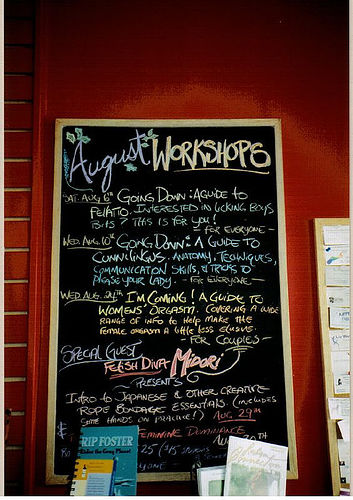 August WORKSHOPS
SAT. AUG. 6th GOING DOWN: A GUIDE to
FELATIO. INTERESTED IN LICKING BOYS
BITS? THIS IS FOR YOU!
- FOR EVERYONE -
WED. AUG. 10th GOING DOWN: A GUIDE TO
CUNNILINGUS. ANATOMY, TECHNIQUES,
COMMUNICATION SKILLS, & TRICKS TO
PLEASE YOUR LADY. - FOR EVERYONE -
WED. AUG. 24TH I'M COMING! A GUIDE TO
WOMENS' ORGASM. COVERING A WIDE
RANGE OF INFO to HELP MAKE THE
FEMALE ORGASM A little LESS ELUSIVE.
- FOR COUPLES -
SPECIAL GUEST
FETISH DIVA MIDORI
PRESENTS
INTRO to JAPANESE & OTHER CREATIVE
ROPE BONDAGE ESSENTIALS (INCLUDES
SOME HANDS ON PRACTICE!) AUG 29TH
FEMININE DOMINANCE
RIP FOSTER
Rides the Gray Planet